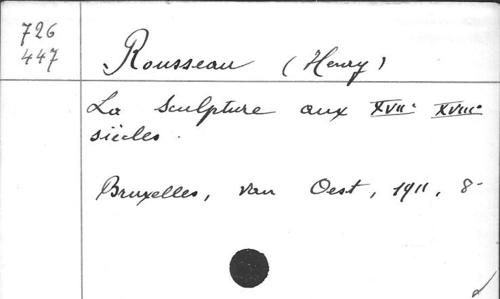 726
447
Rousseau (Henry)
La Sculpture aux XVIIe XVIIIe
siècles.
Bruxelles, van Oest, 1911, 8-